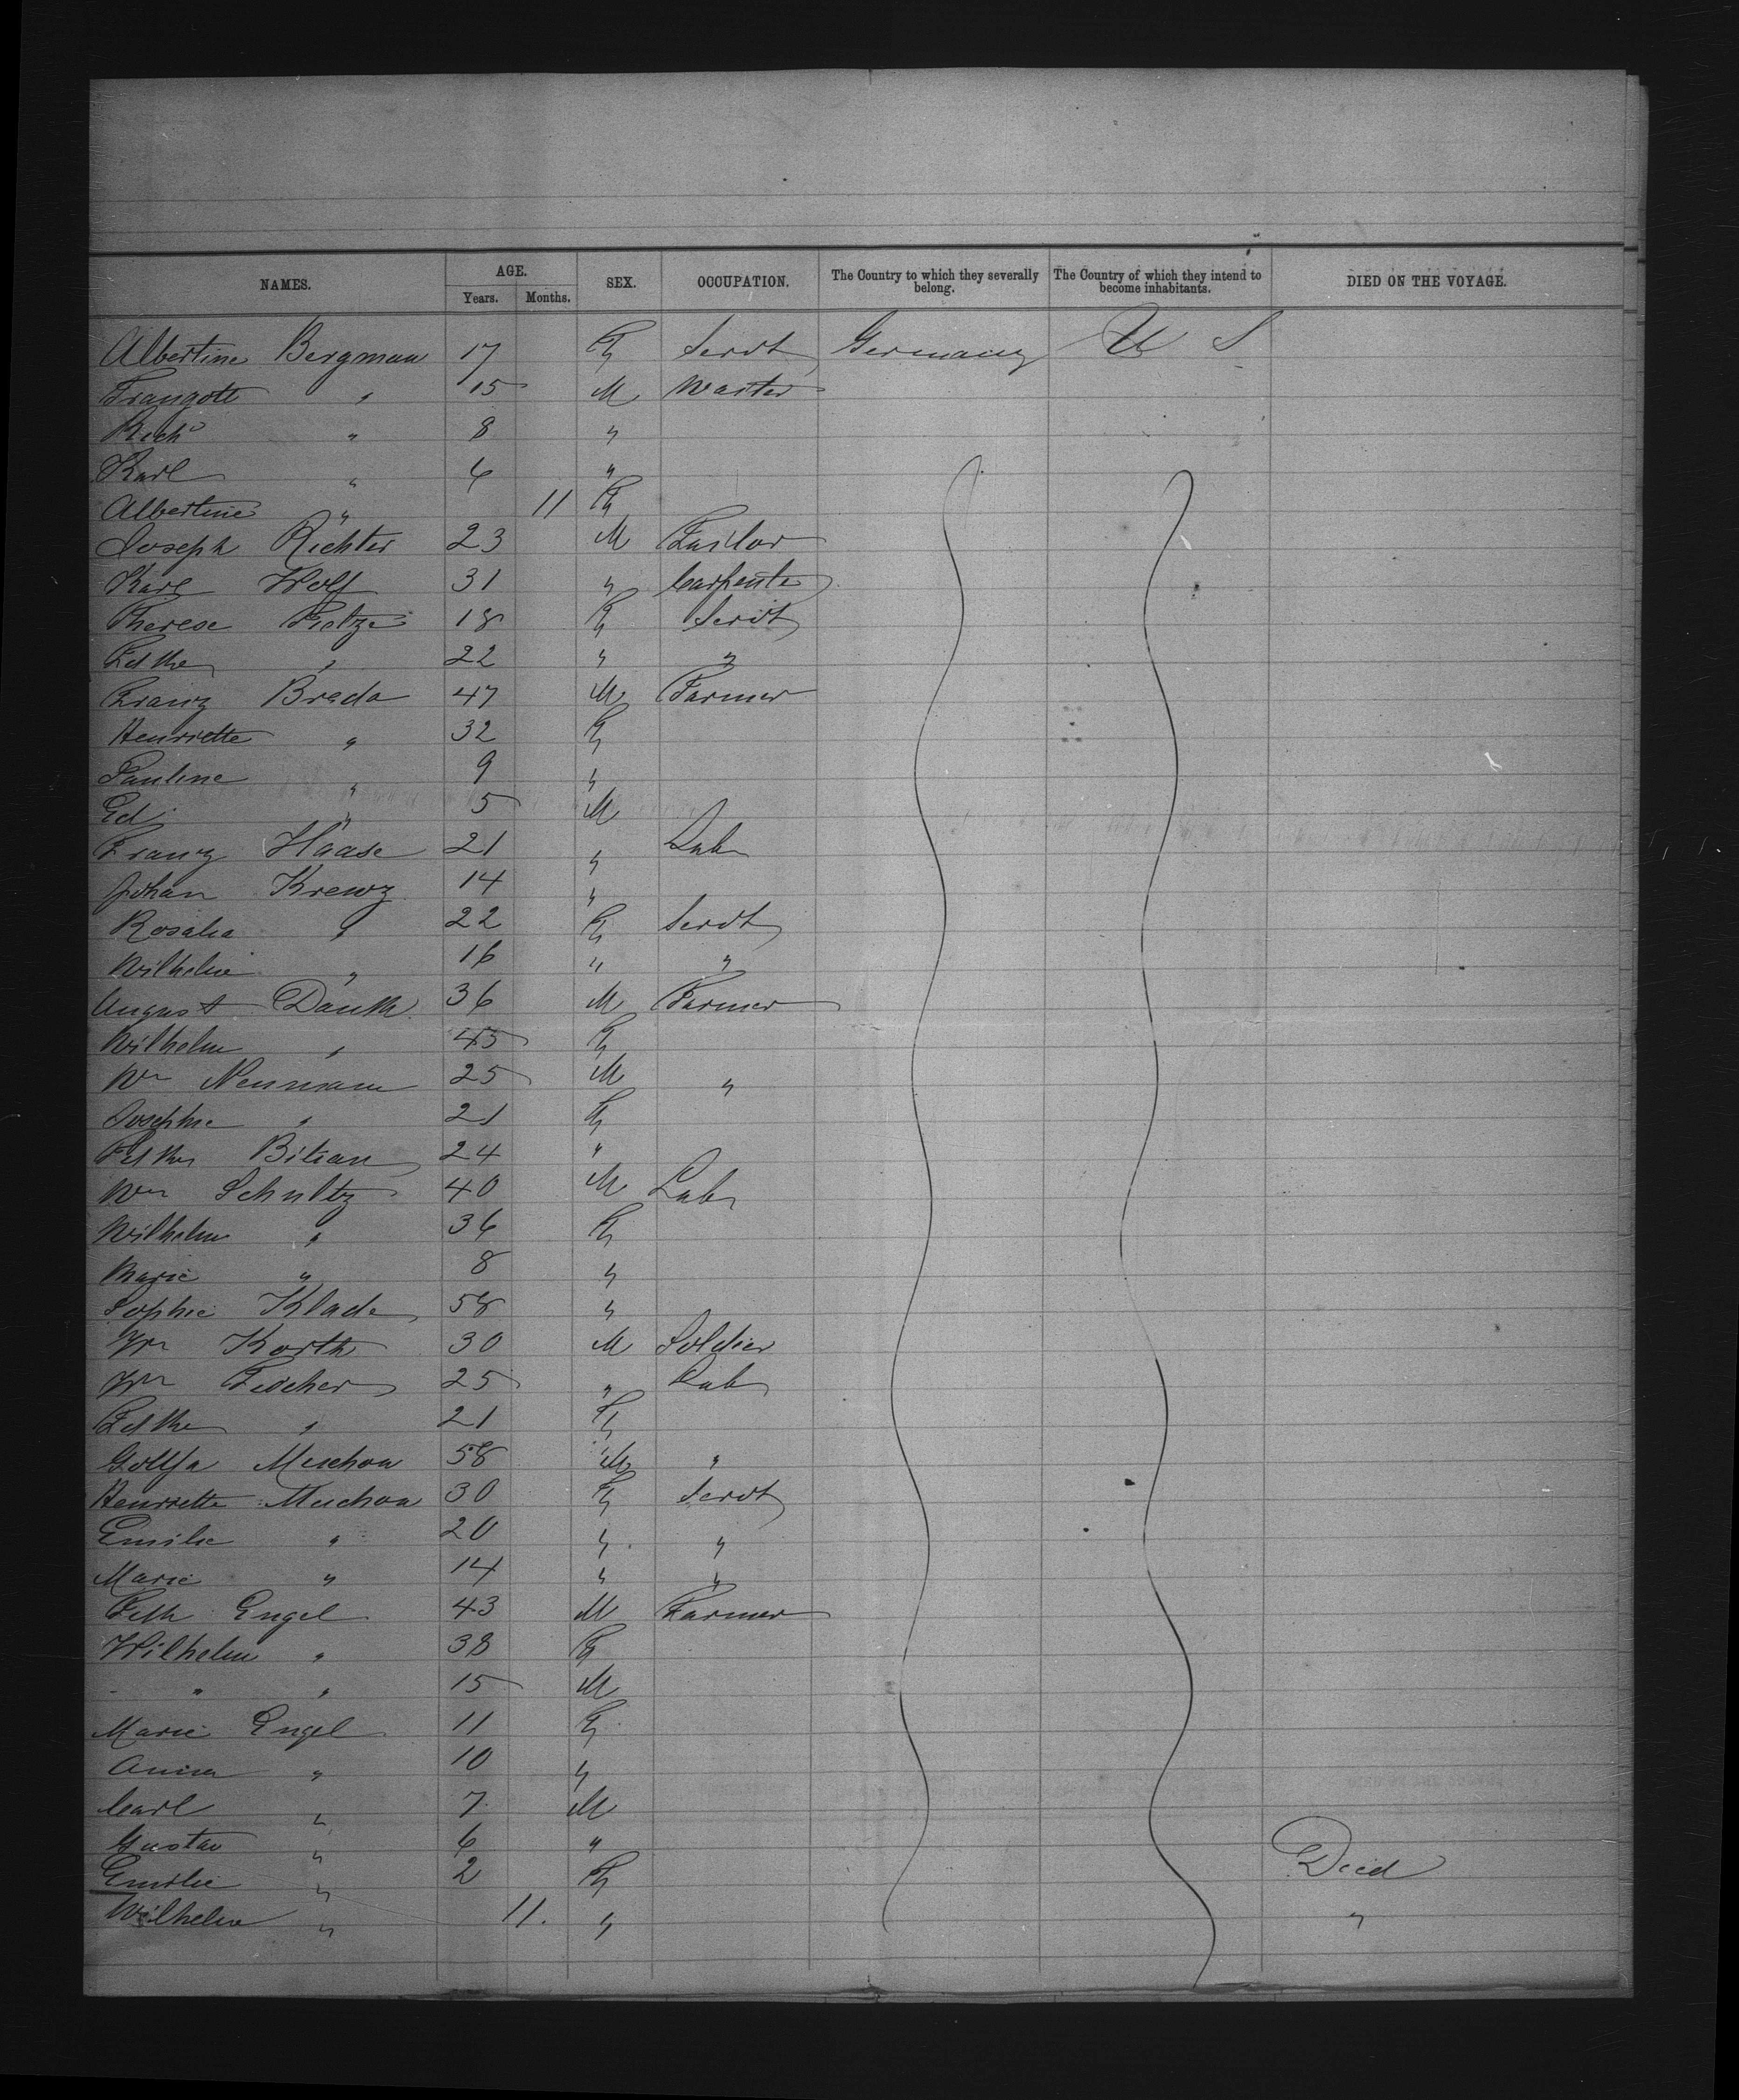 NAMES. AGE. SEX. OCCUPATION. The Country to which they severally belong. The Country of which they intend to become inhabitants. DIED ON THE VOYAGE.
Years. Months.
Albertine Bergman 17 F Servt Germany U S
Traugott " 15 M Waiter
Richd " 8 "
Karl " 6 "
Albertine " 11 F
Joseph Richter 23 M Tailor
Karl Wolf 31 " Carpenter
Therese Tietze 18 F Servt
" 22 " "
Franz Breda 47 M Farmer
Henriette " 32 F
Pauline " 9 "
Ed " 5 M
Franz Haase 21 " Lab
Johan Kreuz 14 "
Rosalia " 22 F Servt
Wilhelm " 16 " "
August 36 M Farmer
Wilhelm " 45 F
Wm Neumann 25 M "
Josephine " 21 F
24 "
Wm Schultz 40 M Lab
Wilhelm " 36 F
Marie " 8 "
Sophie Klade 58 "
Wm Korth 30 M Soldier
Wm Fischer 25 " Lab
" 21 F
58 M "
Henriette 30 F Servt
Emilie " 20 " "
Marie " 14 " "
Engel 43 M Farmer
Wilhelm " 38 F
" " 15 M
Marie Engel 11 F
Anna " 10 "
Carl " 7 M
Gustav " 6 "
Emilie " 2 F Died
Wilhelm " 11. " "